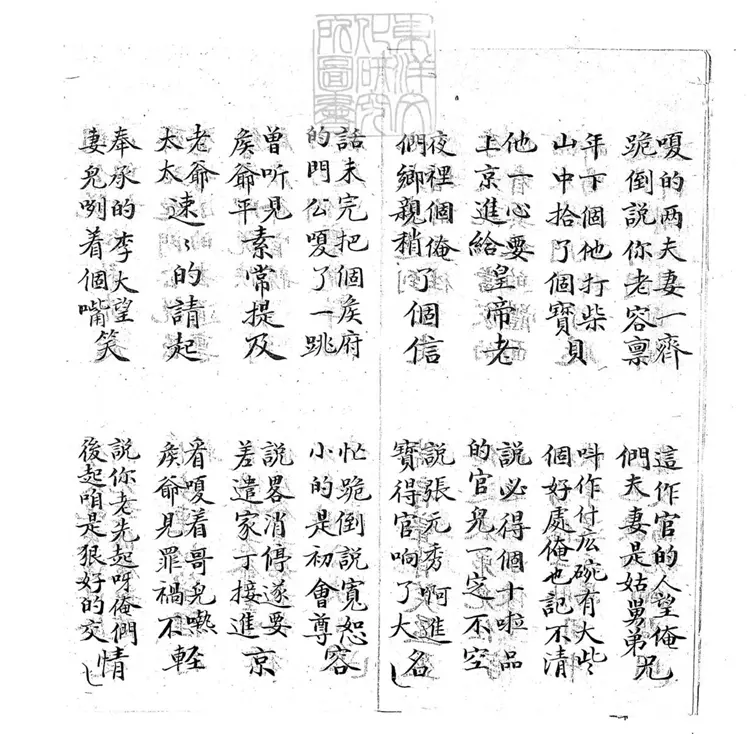 東洋文
化研究
所圖書
嗄的两夫妻一齊
跪倒說你老容禀
這作官的人望俺
們夫妻是姑舅弟兄
年下個他打柴
山中拾了個寶貝
呌作什庅碗有大些〻
個好處俺也記不清
他一心要
上京進給皇帝老
說必得個十啦品
的官兒一定不空
夜裡個俺
們鄉親稍了個信
說張元秀啊進
寶得官响了大名
話未完把個侯府
的門公嗄了一跳
忙跪倒說寬恕
小的是初會尊容
曾聽見
侯爺平素常提及
說畧消停遂要
差遣家丁接進京
老爺
太太速〻的請起
看嗄着哥兒嗽
侯爺見罪禍不輕
奉承的李大望
妻兒咧着個嘴笑
說你老先起呀俺們
後起咱是狠好的交情